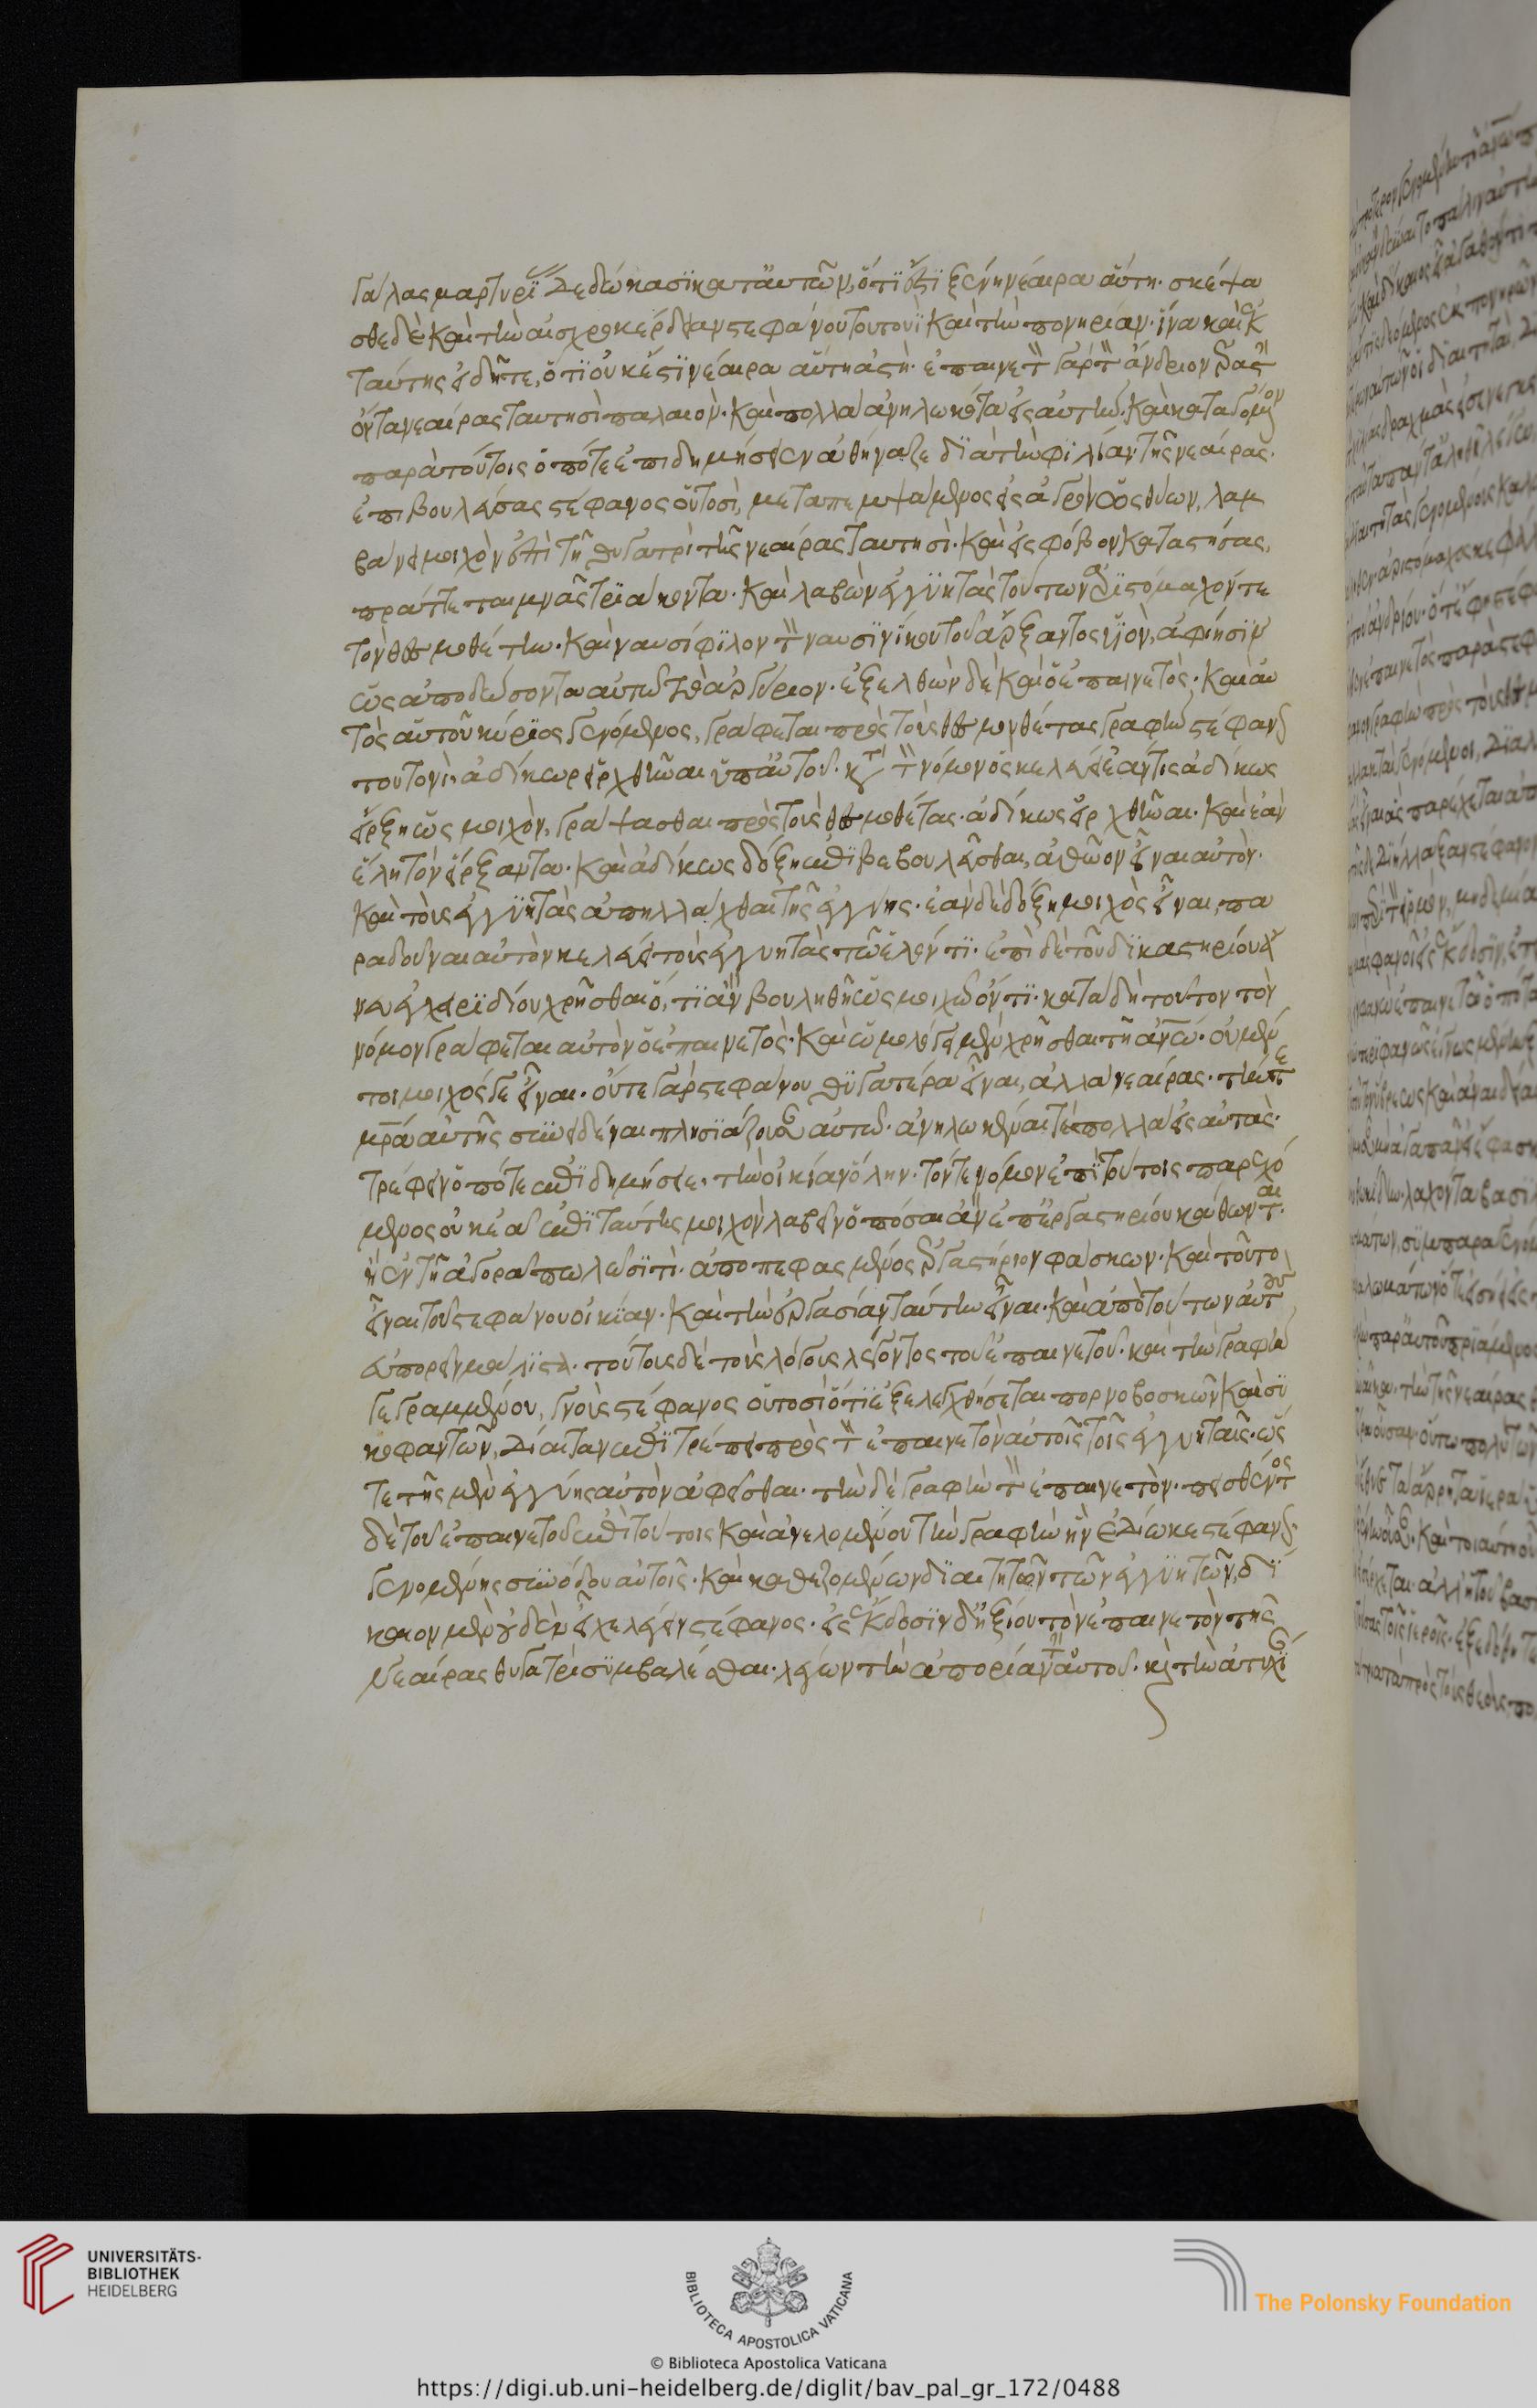 γάλας μαρτυρίας δεδώκασϊ κατ' αὐτῶν, ὅτϊ ἔστϊ ξένη νέαιρα αὕτη· σκέψα
σθε δὲ καὶ τὴν αἰσχροκέρδειαν στεφάνου τουτουῒ καὶ τὴν πονηρίαν· ἵνα καὶ ἐκ
ταύτης εἰδῆτε, ὅτι οὐκ ἔστϊ νέαιρα αὕτη ἀστή· ἐπαίνετον γὰρ τὸν ἄνδριον ἐραστὴν
ὄντα νεαίρας ταυτησὶ παλαιόν· καὶ πολλὰ ἀνηλωκότα εἰς αὐτήν· καὶ καταγόμενον
παρὰ τούτοις ὁπότε ἐπιδημήσειεν ἀθήναζε διὰ τὴν φιλίαν τῆς νεαίρας·
ἐπιβουλεύσας στέφανος οὑτοσὶ, μεταπεμψάμενος εἰς ἀγρὸν ὡς θύων, λαμ
βάνει μοιχὸν ἐπὶ τῇ θυγατρὶ τῆς νεαίρας ταυτησί· καὶ εἰς φόβον καταστήσας,
πράττεται μνᾶς τριάκοντα· καὶ λαβὼν ἐγγυητὰς τούτων ἀριστόμαχόν τε
τὸν θεσμοθέτην· καὶ ναυσίφιλον τὸν ναυσινίκου τοῦ ἄρξαντος υἱὸν, ἀφίησιν
ὡς ἀποδώσοντα αὐτῷ τὸ ἀργύριον· ἐξελθὼν δὲ καὶ ὁ ἐπαινετὸς· καὶ αὐ
τὸς αὑτοῦ κύριος γενόμενος, γράφεται πρὸς τοὺς θεσμοθέτας γραφὴν στέφανον
τουτονί· ἀδίκως εἱρχθῆναι ὑπ' αὐτοῦ· κατὰ τὸν νόμον ὃς κελεύει ἐάν τις ἀδίκως
εἴρξῃ ὡς μοιχὸν, γράψασθαι πρὸς τοὺς θεσμοθέτας· ἀδίκως εἱρχθῆναι· καὶ ἐὰν
ἕλῃ τὸν εἴρξαντα· καὶ ἀδίκως δόξῃ ἐπιβεβουλεῦσθαι, ἀθῶον εἶναι αὐτὸν·
καὶ τοὺς ἐγγυητὰς ἀπηλλάχθαι τῆς ἐγγύης· ἐὰν δὲ δόξῃ μοιχὸς εἶναι, πα
ραδοῦναι αὐτὸν κελεύει τοὺς ἐγγυητὰς τῷ ἑλόντϊ· ἐπὶ δὲ τοῦ δικαστηρίου ἄ
νευ ἐγχειριδίου χρῆσθαι ὅ,τϊ ἂν βουληθῇ ὡς μοιχῷ ὄντϊ· κατὰ δὴ τοῦτον τὸν
νόμον γράφεται αὐτὸν ὁ ἐπαινετός· καὶ ὡμολόγει μὲν χρῆσθαι τῇ ἀνθρώπῳ· οὐ μέν
τοι μοιχός γε εἶναι· οὔτε γὰρ στεφάνου θυγατέρα εἶναι, ἀλλὰ νεαίρας· τὴν δὲ
μητέρα αὐτῆς συνειδέναι πλησιάζουσαν αὐτῷ· ἀνηλωκέναι τε πολλὰ εἰς αὐτάς·
τρέφειν ὁπότε ἐπιδημήσειε· τὴν οἰκίαν ὅλην· τόν τε νόμον ἐπὶ τούτοις παρεχό
μενος οὐκ ἐᾷ ἐπὶ ταύτης μοιχὸν λαβεῖν ὁπόσαι ἂν ἐπ' ἐργαστηρίου κάθωνται·
ἢ ἐν τῇ ἀγορᾷ πωλῶσί τι· ἀποπεφασμένως ἐργαστήριον φάσκων· καὶ τοῦτο
εἶναι τοῦ στεφάνου οἰκίαν· καὶ τὴν ἐργασίαν ταύτην εἶναι· καὶ ἀπὸ τούτων αὐτοὺς
εὐπορεῖν μάλιστα· τούτους δὲ τοὺς λόγους λέγοντος τοῦ ἐπαινετοῦ· καὶ τὴν γραφὴν
γεγραμμένου, γνοὺς στέφανος οὑτοσὶ ὅτϊ ἐξελεγχθήσεται πορνοβοσκῶν καὶ συ
κοφαντῶν, δίαιταν ἐπιτρέπει πρὸς τὸν ἐπαινετὸν αὐτοῖς τοῖς ἐγγυηταῖς· ὥς
τε τῆς μὲν ἐγγύης αὐτὸν ἀφεῖσθαι· τὴν δὲ γραφὴν τὸν ἐπαινετὸν· πεισθέντος
δὲ τοῦ ἐπαινετοῦ ἐπὶ τούτοις καὶ ἀνελομένου τὴν γραφὴν ἣν ἐδίωκε στέφανον·
γενομένης συνόδου αὐτοῖς· καὶ καθεζομένων διαιτητῶν τῶν ἐγγυητῶν, δί
καιον μὲν οὐδὲν εἶχε λέγειν στέφανος· εἰς ἔκδοσϊν δ' ἠξίου τὸν ἐπαινετὸν τῆς
Νεαίρας θυγατρὶ συμβαλέσθαι· λέγων τὴν ἀπορίαν τὴν αὐτοῦ· καὶ τὴν ἀτυχί
UNIVERSITÄTS-
BIBLIOTHEK
HEIDELBERG
BIBLIOTECA APOSTOLICA VATICANA
© Biblioteca Apostolica Vaticana
The Polonsky Foundation
https://digi.ub.uni-heidelberg.de/diglit/bav_pal_gr_172/0488